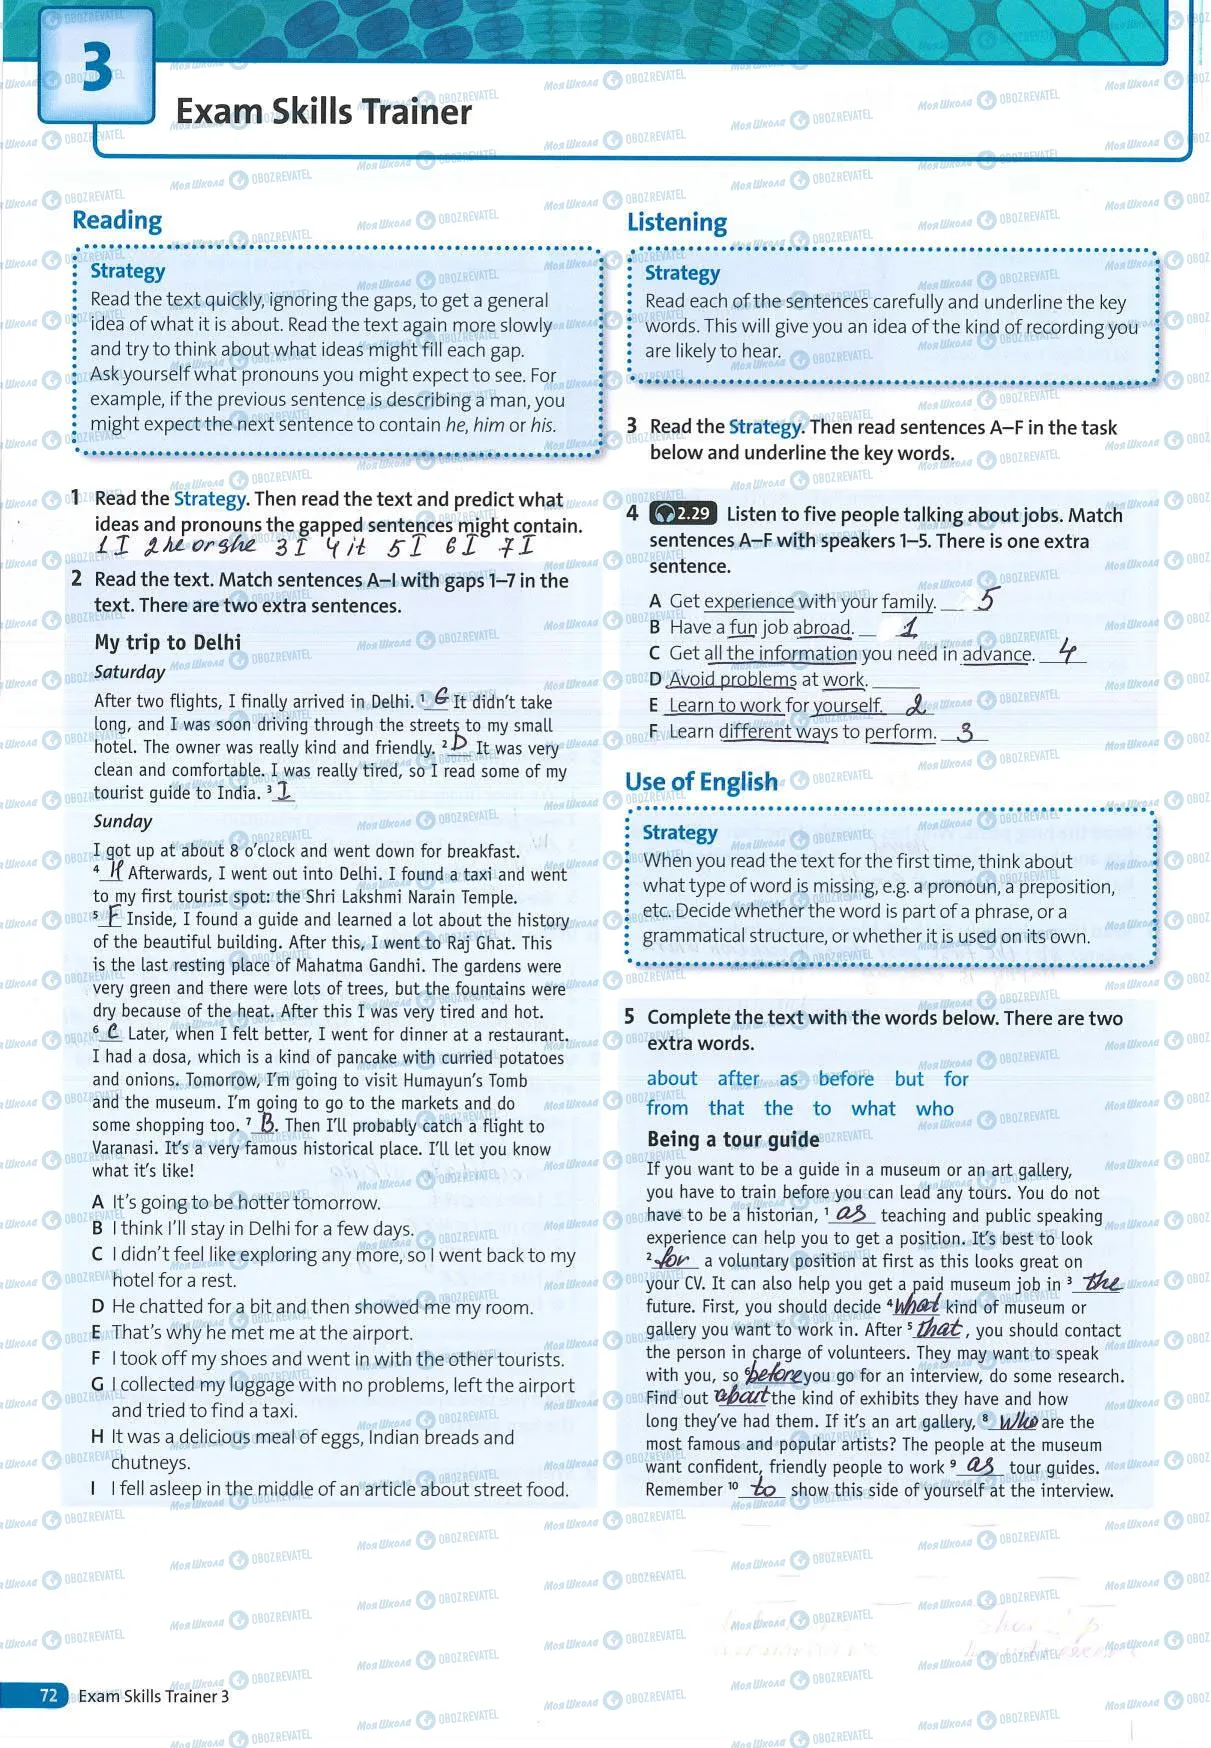 3
Exam Skills Trainer
Reading
Strategy
Read the text quickly, ignoring the gaps, to get a general
idea of what it is about. Read the text again more slowly
and try to think about what ideas might fill each gap.
Ask yourself what pronouns you might expect to see. For
example, if the previous sentence is describing a man, you
might expect the next sentence to contain he, him or his.
1 Read the Strategy. Then read the text and predict what
ideas and pronouns the gapped sentences might contain.
1 I 2 he or she 3 I 4 it 5 I 6 I 7 I
2 Read the text. Match sentences A–I with gaps 1–7 in the
text. There are two extra sentences.
My trip to Delhi
Saturday
After two flights, I finally arrived in Delhi. 1 G It didn't take
long, and I was soon driving through the streets to my small
hotel. The owner was really kind and friendly. 2 D It was very
clean and comfortable. I was really tired, so I read some of my
tourist guide to India. 3 I
Sunday
I got up at about 8 o'clock and went down for breakfast.
4 H Afterwards, I went out into Delhi. I found a taxi and went
to my first tourist spot: the Shri Lakshmi Narain Temple.
5 F Inside, I found a guide and learned a lot about the history
of the beautiful building. After this, I went to Raj Ghat. This
is the last resting place of Mahatma Gandhi. The gardens were
very green and there were lots of trees, but the fountains were
dry because of the heat. After this I was very tired and hot.
6 C Later, when I felt better, I went for dinner at a restaurant.
I had a dosa, which is a kind of pancake with curried potatoes
and onions. Tomorrow, I'm going to visit Humayun's Tomb
and the museum. I'm going to go to the markets and do
some shopping too. 7 B. Then I'll probably catch a flight to
Varanasi. It's a very famous historical place. I'll let you know
what it's like!
A It's going to be hotter tomorrow.
B I think I'll stay in Delhi for a few days.
C I didn't feel like exploring any more, so I went back to my
hotel for a rest.
D He chatted for a bit and then showed me my room.
E That's why he met me at the airport.
F I took off my shoes and went in with the other tourists.
G I collected my luggage with no problems, left the airport
and tried to find a taxi.
H It was a delicious meal of eggs, Indian breads and
chutneys.
I I fell asleep in the middle of an article about street food.
Listening
Strategy
Read each of the sentences carefully and underline the key
words. This will give you an idea of the kind of recording you
are likely to hear.
3 Read the Strategy. Then read sentences A–F in the task
below and underline the key words.
4 2.29 Listen to five people talking about jobs. Match
sentences A–F with speakers 1–5. There is one extra
sentence.
A Get experience with your family. 5
B Have a fun job abroad. 1
C Get all the information you need in advance. 4
D Avoid problems at work.
E Learn to work for yourself. 2
F Learn different ways to perform. 3
Use of English
Strategy
When you read the text for the first time, think about
what type of word is missing, e.g. a pronoun, a preposition,
etc. Decide whether the word is part of a phrase, or a
grammatical structure, or whether it is used on its own.
5 Complete the text with the words below. There are two
extra words.
about after as before but for
from that the to what who
Being a tour guide
If you want to be a guide in a museum or an art gallery,
you have to train before you can lead any tours. You do not
have to be a historian, 1 as teaching and public speaking
experience can help you to get a position. It's best to look
2 for a voluntary position at first as this looks great on
your CV. It can also help you get a paid museum job in 3 the
future. First, you should decide 4 what kind of museum or
gallery you want to work in. After 5 that, you should contact
the person in charge of volunteers. They may want to speak
with you, so 6 before you go for an interview, do some research.
Find out 7 about the kind of exhibits they have and how
long they've had them. If it's an art gallery, 8 who are the
most famous and popular artists? The people at the museum
want confident, friendly people to work 9 as tour guides.
Remember 10 to show this side of yourself at the interview.
72 Exam Skills Trainer 3
МояШкола OBOZREVATEL